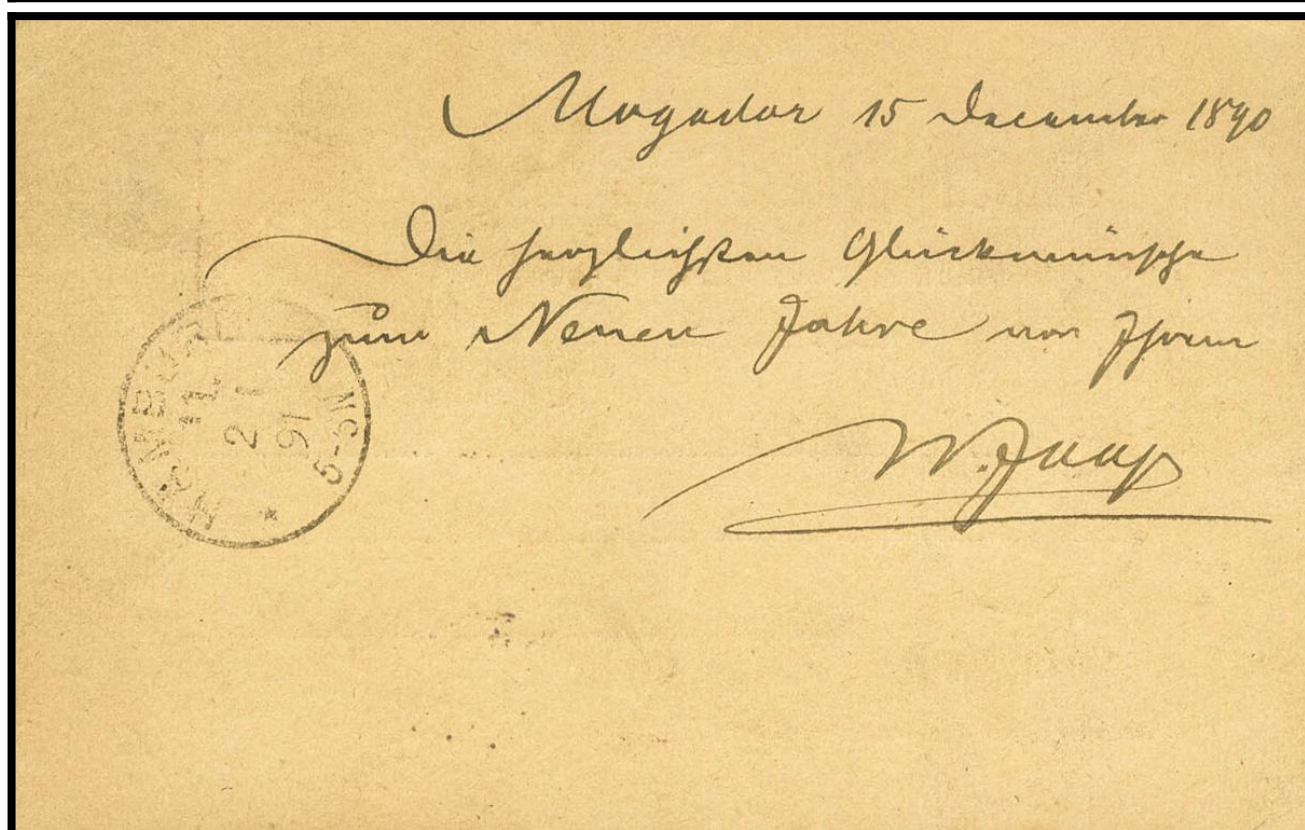 Mogador 15 December 1890
Die herzlichsten Glückwünsche
zum Neuen Jahre von Ihrem
W. Jaap
HAMBURG
11.
2 1
91
5-5N